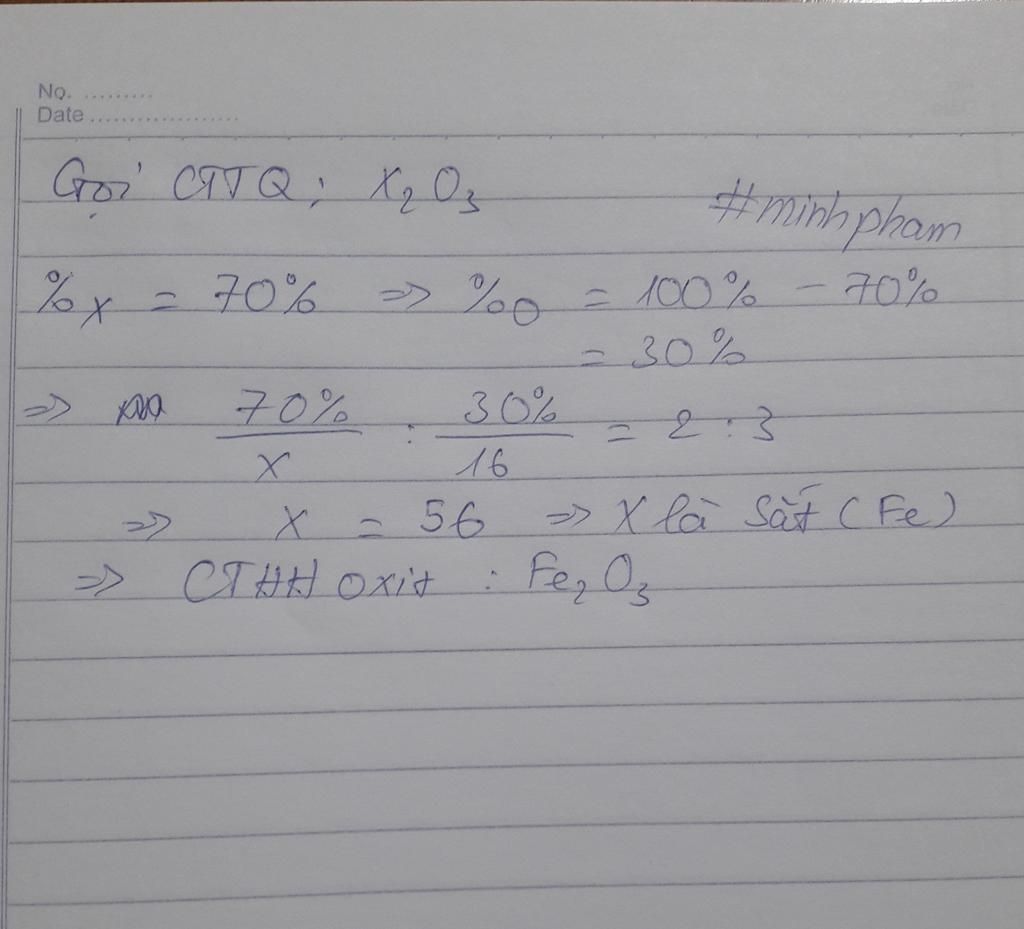 No. .........
Date ..................
Gọi CTTQ: X₂O₃
#minhpham
%X = 70% => %O = 100% - 70%
= 30%
=> 70%/X : 30%/16 = 2 : 3
=> X = 56 => X là Sắt (Fe)
=> CTHH oxit : Fe₂O₃